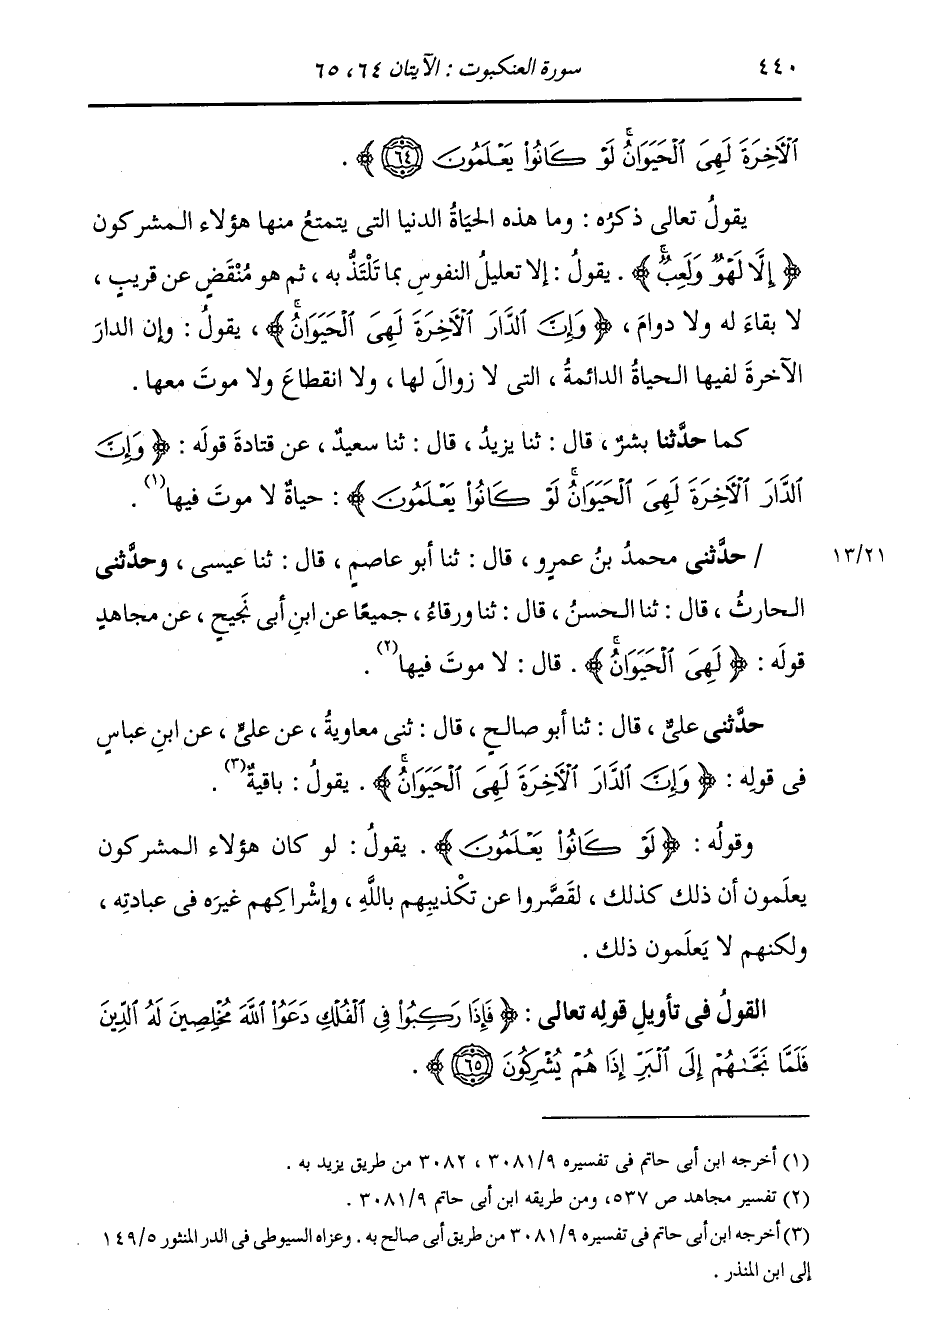 ٤٤٠ سورة العنكبوت : الآيتان ٦٤، ٦٥
ٱلْأَخِرَةَ لَهِىَ ٱلْحَيَوَانُۚ لَوْ كَانُوا۟ يَعْلَمُونَ ﴿٦٤﴾ ﴾ .
يقولُ تعالى ذكرُه : وما هذه الحياةُ الدنيا التى يتمتعُ منها هؤلاء المشركون
﴿ إِلَّا لَهْوٌ وَلَعِبٌۚ ﴾ . يقولُ : إلا تعليلُ النفوسِ بما تَلْتَذُّ به ، ثم هو مُنْقَضٍ عن قريبٍ ،
لا بقاءَ له ولا دوامَ ، ﴿ وَإِنَّ ٱلدَّارَ ٱلْأَخِرَةَ لَهِىَ ٱلْحَيَوَانُۚ ﴾ ، يقولُ : وإن الدارَ
الآخرةَ لفيها الحياةُ الدائمةُ ، التى لا زوالَ لها ، ولا انقطاعَ ولا موتَ معها .
كما حدَّثنا بشرٌ ، قال : ثنا يزيدُ ، قال : ثنا سعيدٌ ، عن قتادةَ قولَه : ﴿ وَإِنَّ
ٱلدَّارَ ٱلْأَخِرَةَ لَهِىَ ٱلْحَيَوَانُۚ لَوْ كَانُوا۟ يَعْلَمُونَ ﴾ : حياةٌ لا موتَ فيها(١) .
١٣/٢١ / حدَّثنى محمدُ بنُ عمرٍو ، قال : ثنا أبو عاصمٍ ، قال : ثنا عيسى ، وحدَّثنى
الحارثُ ، قال : ثنا الحسنُ ، قال : ثنا ورقاءُ ، جميعًا عن ابنِ أبى نَجيحٍ ، عن مجاهدٍ
قولَه : ﴿ لَهِىَ ٱلْحَيَوَانُۚ ﴾ . قال : لا موتَ فيها(٢) .
حدَّثنى علىٌّ ، قال : ثنا أبو صالحٍ ، قال : ثنى معاويةُ ، عن علىٍّ ، عن ابنِ عباسٍ
فى قولِه : ﴿ وَإِنَّ ٱلدَّارَ ٱلْأَخِرَةَ لَهِىَ ٱلْحَيَوَانُۚ ﴾ . يقولُ : باقيةٌ(٣) .
وقولُه : ﴿ لَوْ كَانُوا۟ يَعْلَمُونَ ﴾ . يقولُ : لو كان هؤلاء المشركون
يعلَمون أن ذلك كذلك ، لقَصَّروا عن تكْذيبِهم باللَّهِ ، وإشْراكِهم غيرَه فى عبادتِه ،
ولكنهم لا يَعلَمون ذلك .
القولُ فى تأويلِ قوله تعالى : ﴿ فَإِذَا رَكِبُوا۟ فِى ٱلْفُلْكِ دَعَوُا۟ ٱللَّهَ مُخْلِصِينَ لَهُ ٱلدِّينَ
فَلَمَّا نَجَّىٰهُمْ إِلَى ٱلْبَرِّ إِذَا هُمْ يُشْرِكُونَ ﴿٦٥﴾ ﴾ .
(١) أخرجه ابن أبى حاتم فى تفسيره ٣٠٨١/٩ ، ٣٠٨٢ من طريق يزيد به .
(٢) تفسير مجاهد ص ٥٣٧، ومن طريقه ابن أبى حاتم ٣٠٨١/٩ .
(٣) أخرجه ابن أبى حاتم فى تفسيره ٣٠٨١/٩ من طريق أبى صالح به . وعزاه السيوطى فى الدر المنثور ١٤٩/٥
إلى ابن المنذر .